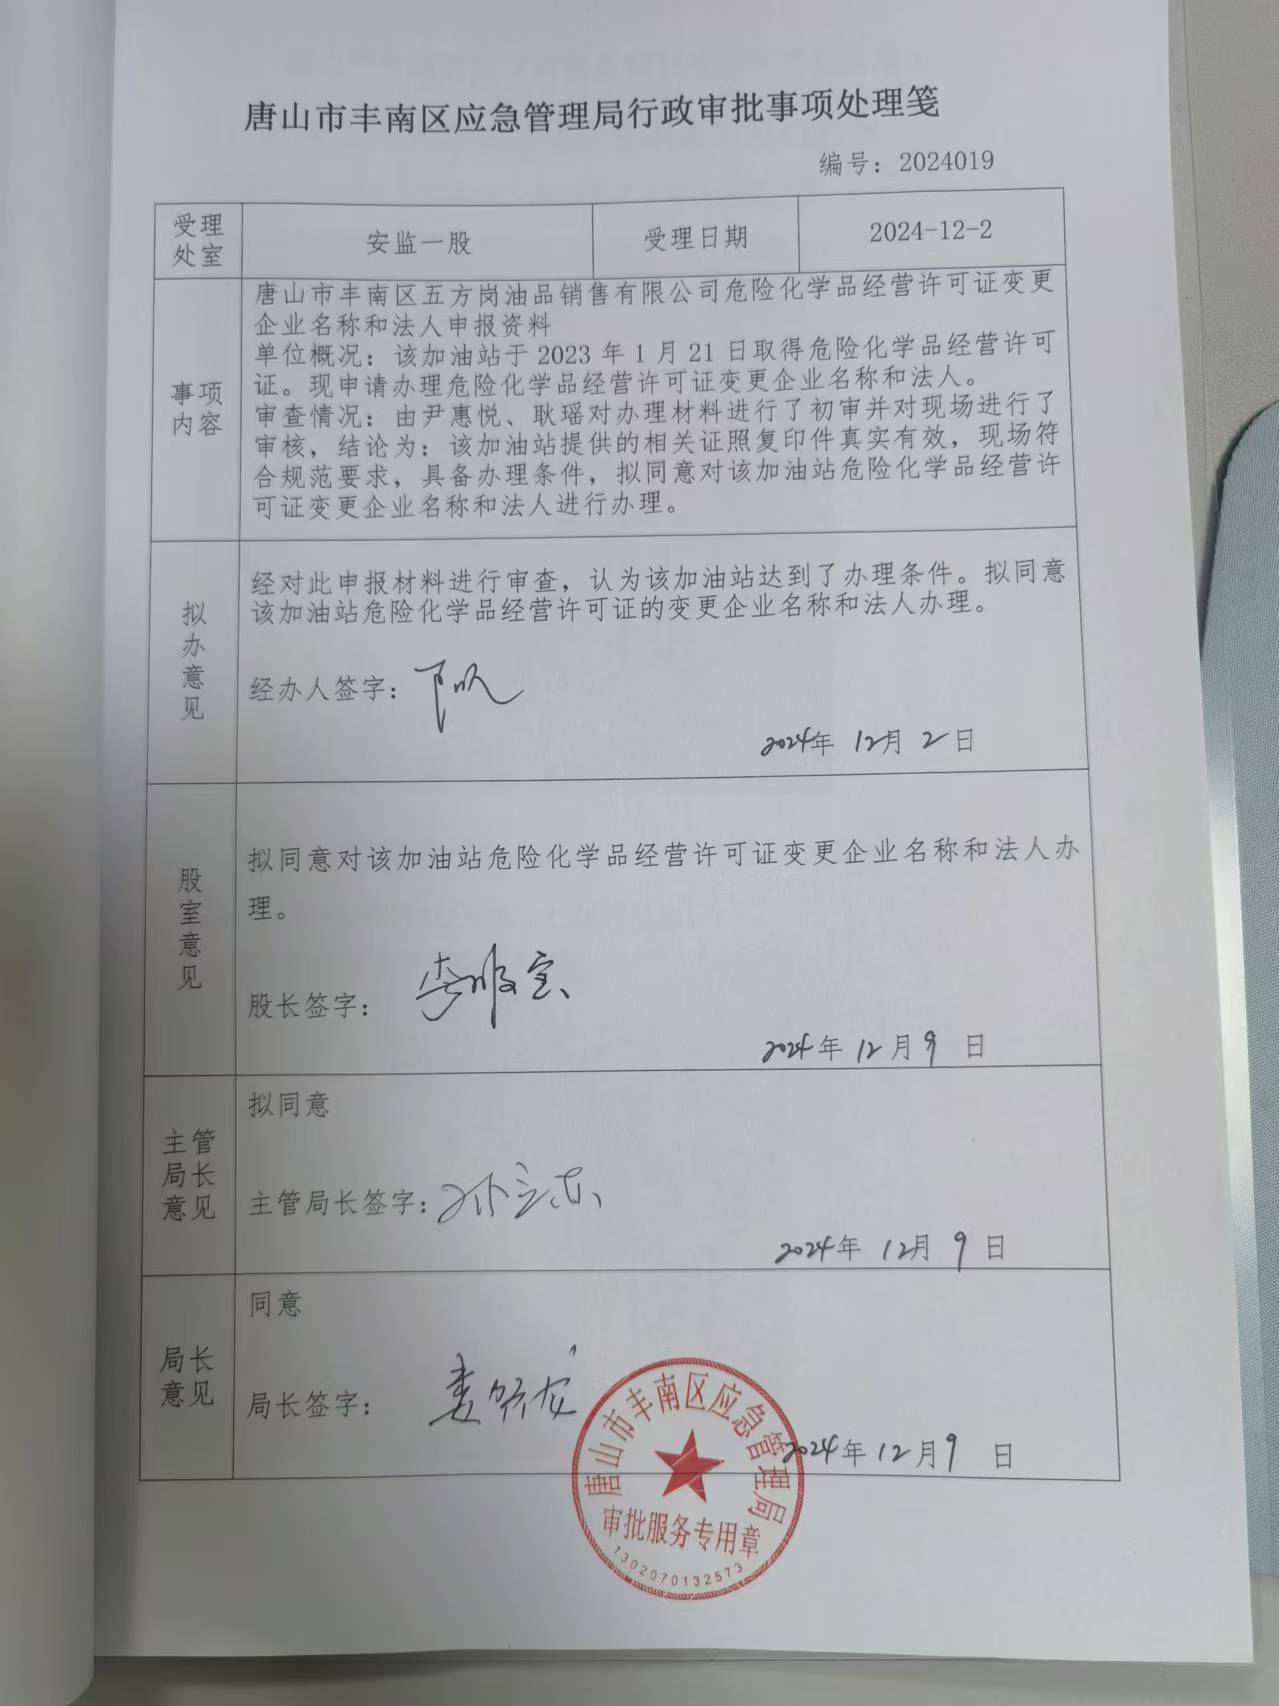 唐山市丰南区应急管理局行政审批事项处理笺
编号：2024019
受理处室
安监一股
受理日期
2024-12-2
事项内容
唐山市丰南区五方岗油品销售有限公司危险化学品经营许可证变更
企业名称和法人申报资料
单位概况：该加油站于 2023 年 1 月 21 日取得危险化学品经营许可
证。现申请办理危险化学品经营许可证变更企业名称和法人。
审查情况：由尹惠悦、耿瑶对办理材料进行了初审并对现场进行了
审核，结论为：该加油站提供的相关证照复印件真实有效，现场符
合规范要求，具备办理条件，拟同意对该加油站危险化学品经营许
可证变更企业名称和法人进行办理。
拟办意见
经对此申报材料进行审查，认为该加油站达到了办理条件。拟同意
该加油站危险化学品经营许可证的变更企业名称和法人办理。
经办人签字：
2024年 12月 2 日
股室意见
拟同意对该加油站危险化学品经营许可证变更企业名称和法人办
理。
股长签字：
2024年 12月 9 日
主管局长意见
拟同意
主管局长签字：
2024年 12月 9 日
局长意见
同意
局长签字：
2024年 12月 9 日
唐山市丰南区应急管理局
审批服务专用章
1302070132573